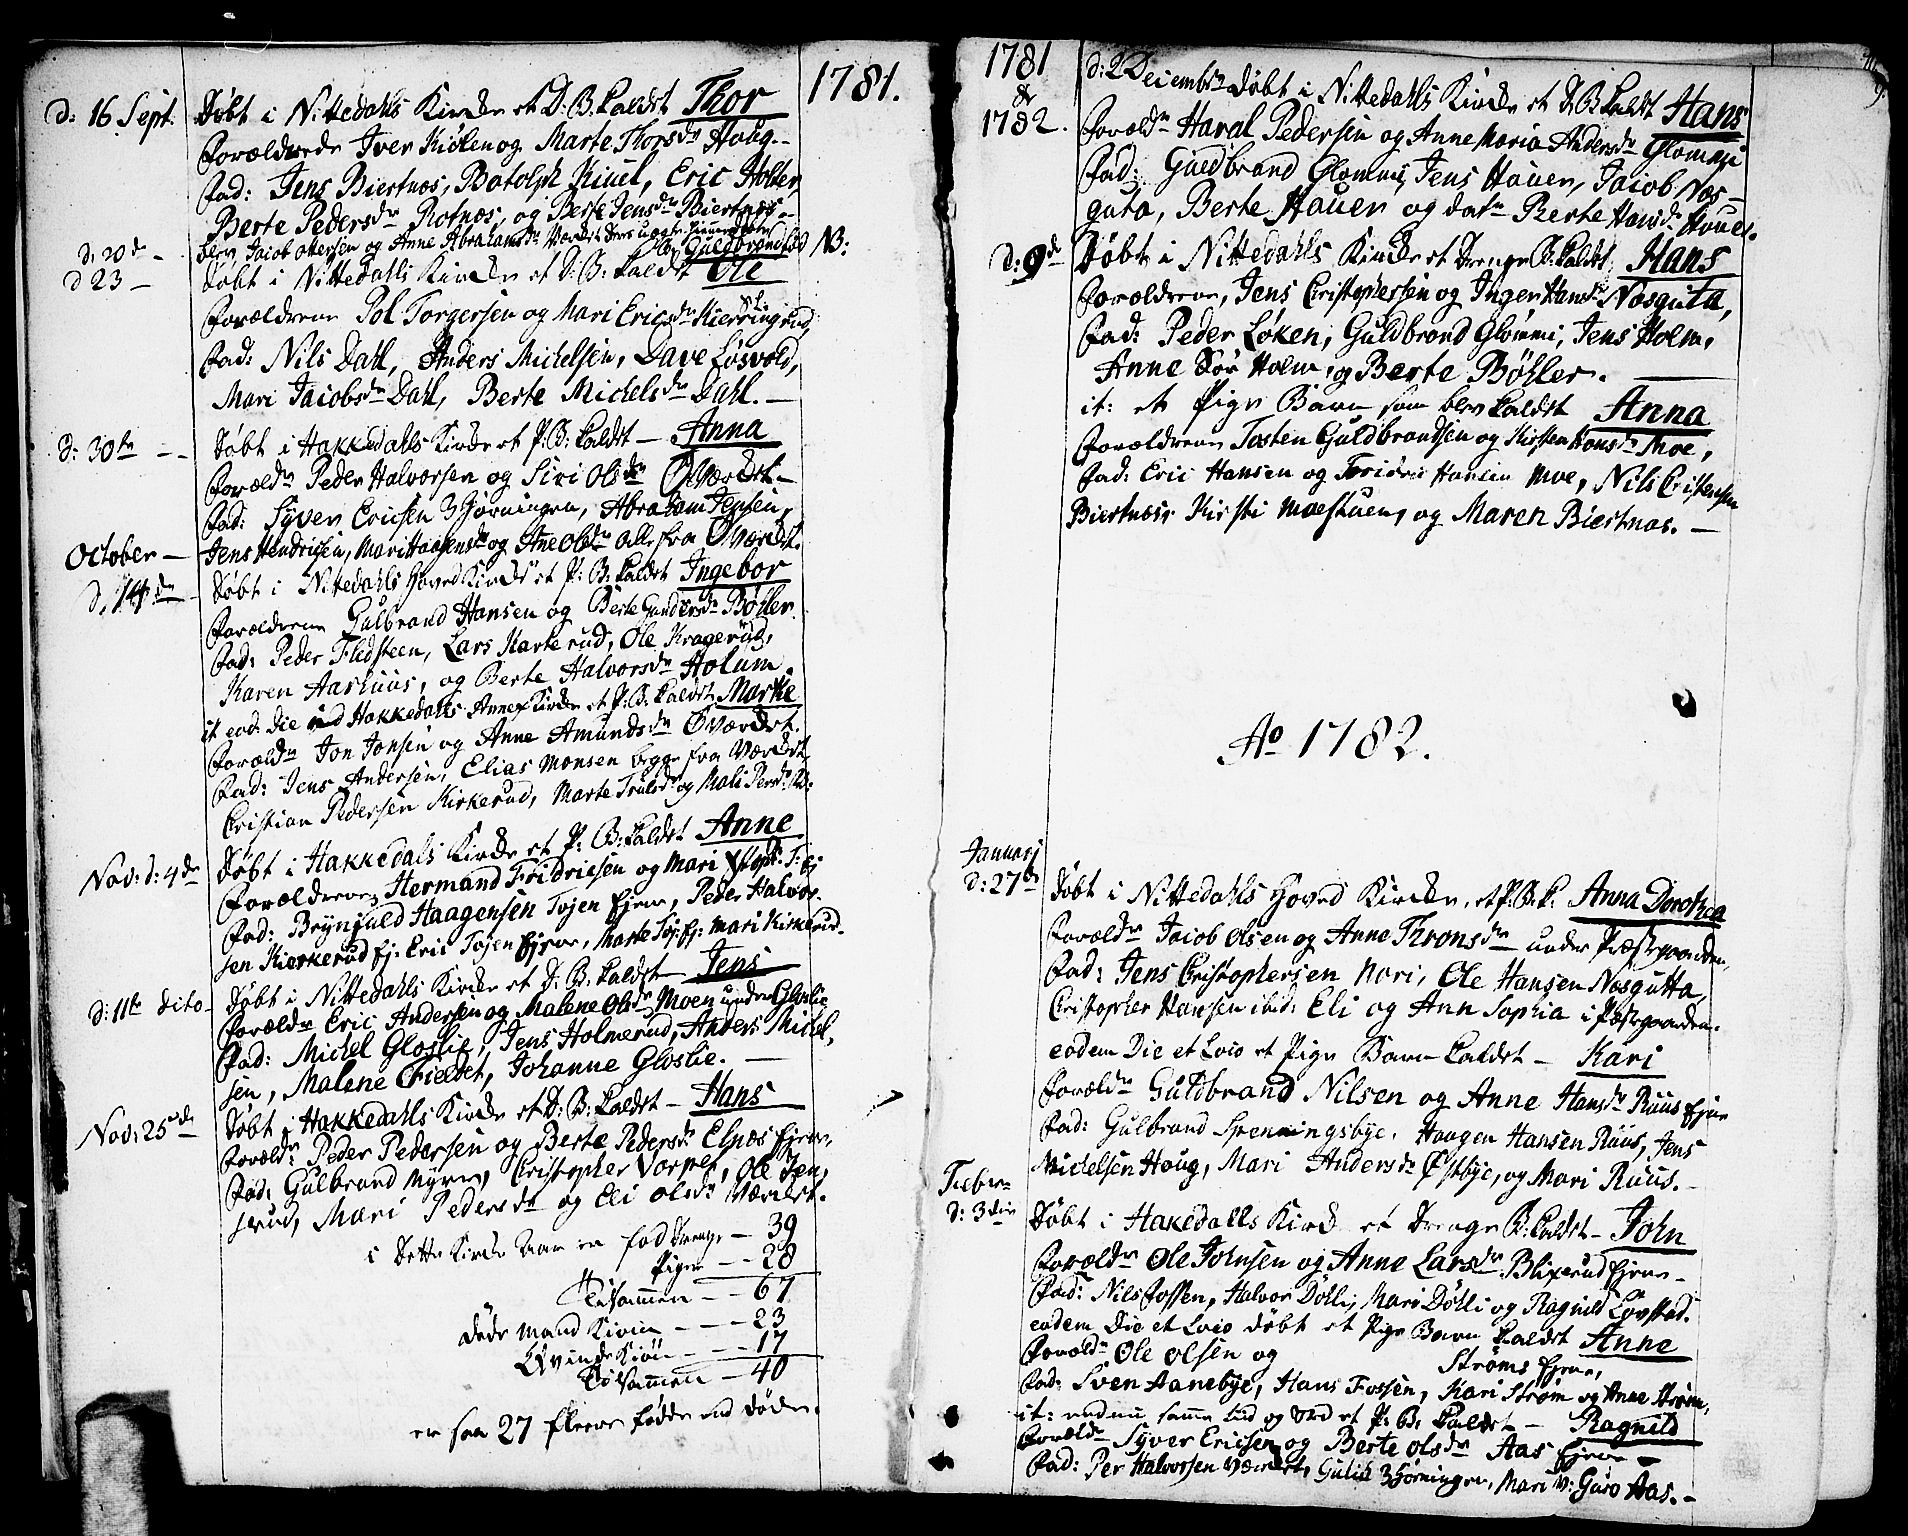 1781.
d: 16 Sept. Døbt i Nittedahls Kircke et D: B. kaldet Thor
Forældrene Iver Kiølen og Marte Thorsdr Houg.
Fad: Jens Biertnæs, Botolph Kiuel, Eric Holter,
Berte Pedersdr Rotnæs, og Berte Jensdr Biertnæs.
d: 20de blev Jacob Ottersen og Anne Abrahamsdr Værdets Deres uægte
blev Guldbrand NB:
d 23 — Døbt i Nittedahls Kircke et D: B: kaldet Ole
Forældrene Pol Torgersen og Mari Ericsdr Kierringrud,
Fad: Nils Dahl, Anders Michelsen, Dave Løsvold,
Mari Jacobsdr Dahl, Berte Michelsdr Dahl. —
d: 30te — Døbt i Hakkedahls Kircke et P: B: kaldet — Anna
Foræld: Peder Halvorsen og Siri Olsdr Ø Værdet. —
Fad: Syver Ericsen Zjørningen, Abraham Jensen,
October — Jens Hendricsen, Mari Haagensdr og Ane Olsdr alle fra Ø Værdet.
d. 14de Døbt i Nittedahls Hoved Kircke et P: B. kaldet Ingebor
Forældrene Gulbrand Hansen og Berte Gundersdr Bøhler.
Fad: Peder Fledsteen, Lars Karterud, Ole Kragerud,
Karen Aashuus, og Berte Halvorsdr Holum.
it eod: die ved Hakkedahls Annex Kircke et P: B: kaldet Marthe
Foræld: Jon Jonsen og Anne Amundsdr Ø Værdet.
Fad: Jens Andersen, Elias Monsen begge fra Værdet,
Cristian Pedersen Kirkerud, Marte Trulsdr og Mali Persdr ibd:
Nov: d: 4de Døbt i Hakkedals Kircke et P: B: kaldet Anne
Forældrene Hermand Fridricsen og Mari T: Ej
Fad: Brynjuld Haagensen Tøjen Ejere, Peder Halvor-
sen Kierkerud Ej: Eric Tøjen Ejere, Marte Tøj: Ej: Mari Kirkerud.
d: 11te dito Døbt i Nittedahls Kircke et D: B: kaldet — Jens
Foræld: Eric Andersen og Malene Olsdr Moen under Gloslie
Fad: Michel Gloslie, Jens Holmerud, Anders Michel-
sen, Malene Criedet, Johanne Gloslie. —
Nov: 25de Døbt i Hakkedahls Kircke et D: B: kaldet — Hans
Foræld: Peder Pedersen og Berte Pedersdr Elnæs Ejere,
Fad: Gulbrand Myren, Cristopher Varpet, Ole Jen-
srud, Mari Pedersdr og Eli Olsdr Værdet.
i Dette Kircke Aar er fød Drenge — 39
Piger — 28
Tilsammen — 67
Døde Mand Kiøn — 23
Qvinde Kiøn — 17
Tilsammen — 40
er saa 27 fleere fødde end døde.
1781
&
1782.
9.
d: 2 Decembr Døbt i Nittedahls Kircke et D: B: kaldet Hans
Foræld: Haral Pedersen og Anne Maria Andersdr Glommi
Fad: Guldbrand Glommi, Jens Hauer, Jacob Næs-
guta, Berte Hauer og datr Berte Hansdr Houer.
d: 9de Døbt i Nittedahls Kircke et Drenge B: kaldet Hans
Forældrene, Jens Cristophersen og Inger Hansdr Næsguta,
Fad: Peder Løken, Guldbrand Glømmi, Jens Holm,
Anne Sør Holm, og Berte Bøhler. —
it: et Pige Barn som blev kaldet Anna
Forældrene Tosten Guldbrandsen og Kirsten Hansdr Moe,
Fad: Eric Hansen og Fridric Hansen Moe, Nils Cristensen
Biertnæs, Kirsti Moestuen, og Maren Biertnæs. —
Ao 1782.
Januarj
d: 27de Døbt i Nittedahls Hoved Kircke, et P: B. k. Anna Dorothea
Foræld: Jacob Olsen og Anne Thronsdr under Præstegaarden,
Fad: Jens Cristophersen Nori, Ole Hansen Næsgutta,
Cristopher Hansen ibid: Eli og Ann Sophia i Præstgaarden.
eodem Die et Loco et Pige Barn kaldet — Kari
Foræld: Guldbrand Nilsen og Anne Hansdr Ruus Ejere
Fad: Gulbrand Spenningsbye, Haagen Hansen Ruus, Jens
Michelsen Houg, Mari Andersdr Østbye, og Mari Ruus. —
Febr:
d: 3die Døbt i Hakedals Kircke et Drenge B: kaldet — John
Foræld: Ole Johnsen og Anne Larsdr Blixerud Ejere —
Fad: Nils Fossen, Halvor Dølli, Mari Dølli og Ragnild Løvstad.
eodem Die et Loco døbt et Pige Barn kaldet Anne
Foræld: Ole Olsen og Strøms Ejere,
Fad: Sven Aanebye, Hans Fossen, Kari Strøm og Anne Strøm,
it: endnu samme tid og Sted et P: B: kaldet — Ragnild
Foræld: Syver Ericsen og Berte Olsdr Aas Ejere —
Fad: Per Halvorsen Værdet, Gulich Zjørningen, Mari V: Guro Aas. —